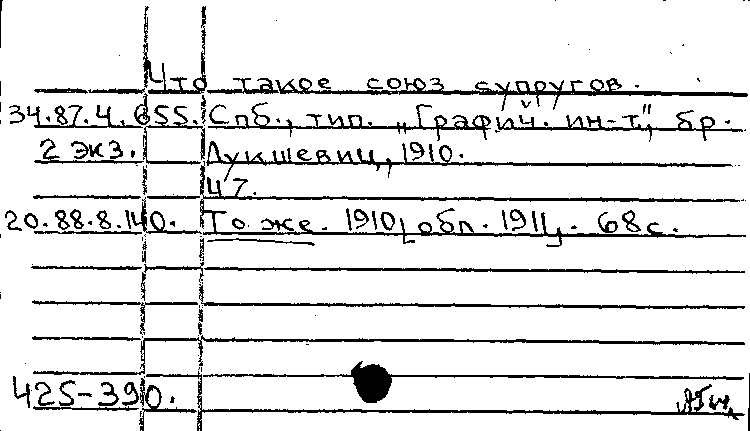 Что такое союз супругов.
34.87.4.655. Спб., тип. „Графич. ин-т", бр.
2 экз. Лукшевиц, 1910.
47.
20.88.8.140. То же. 1910[обл. 1911]. 68 с.
425-390.